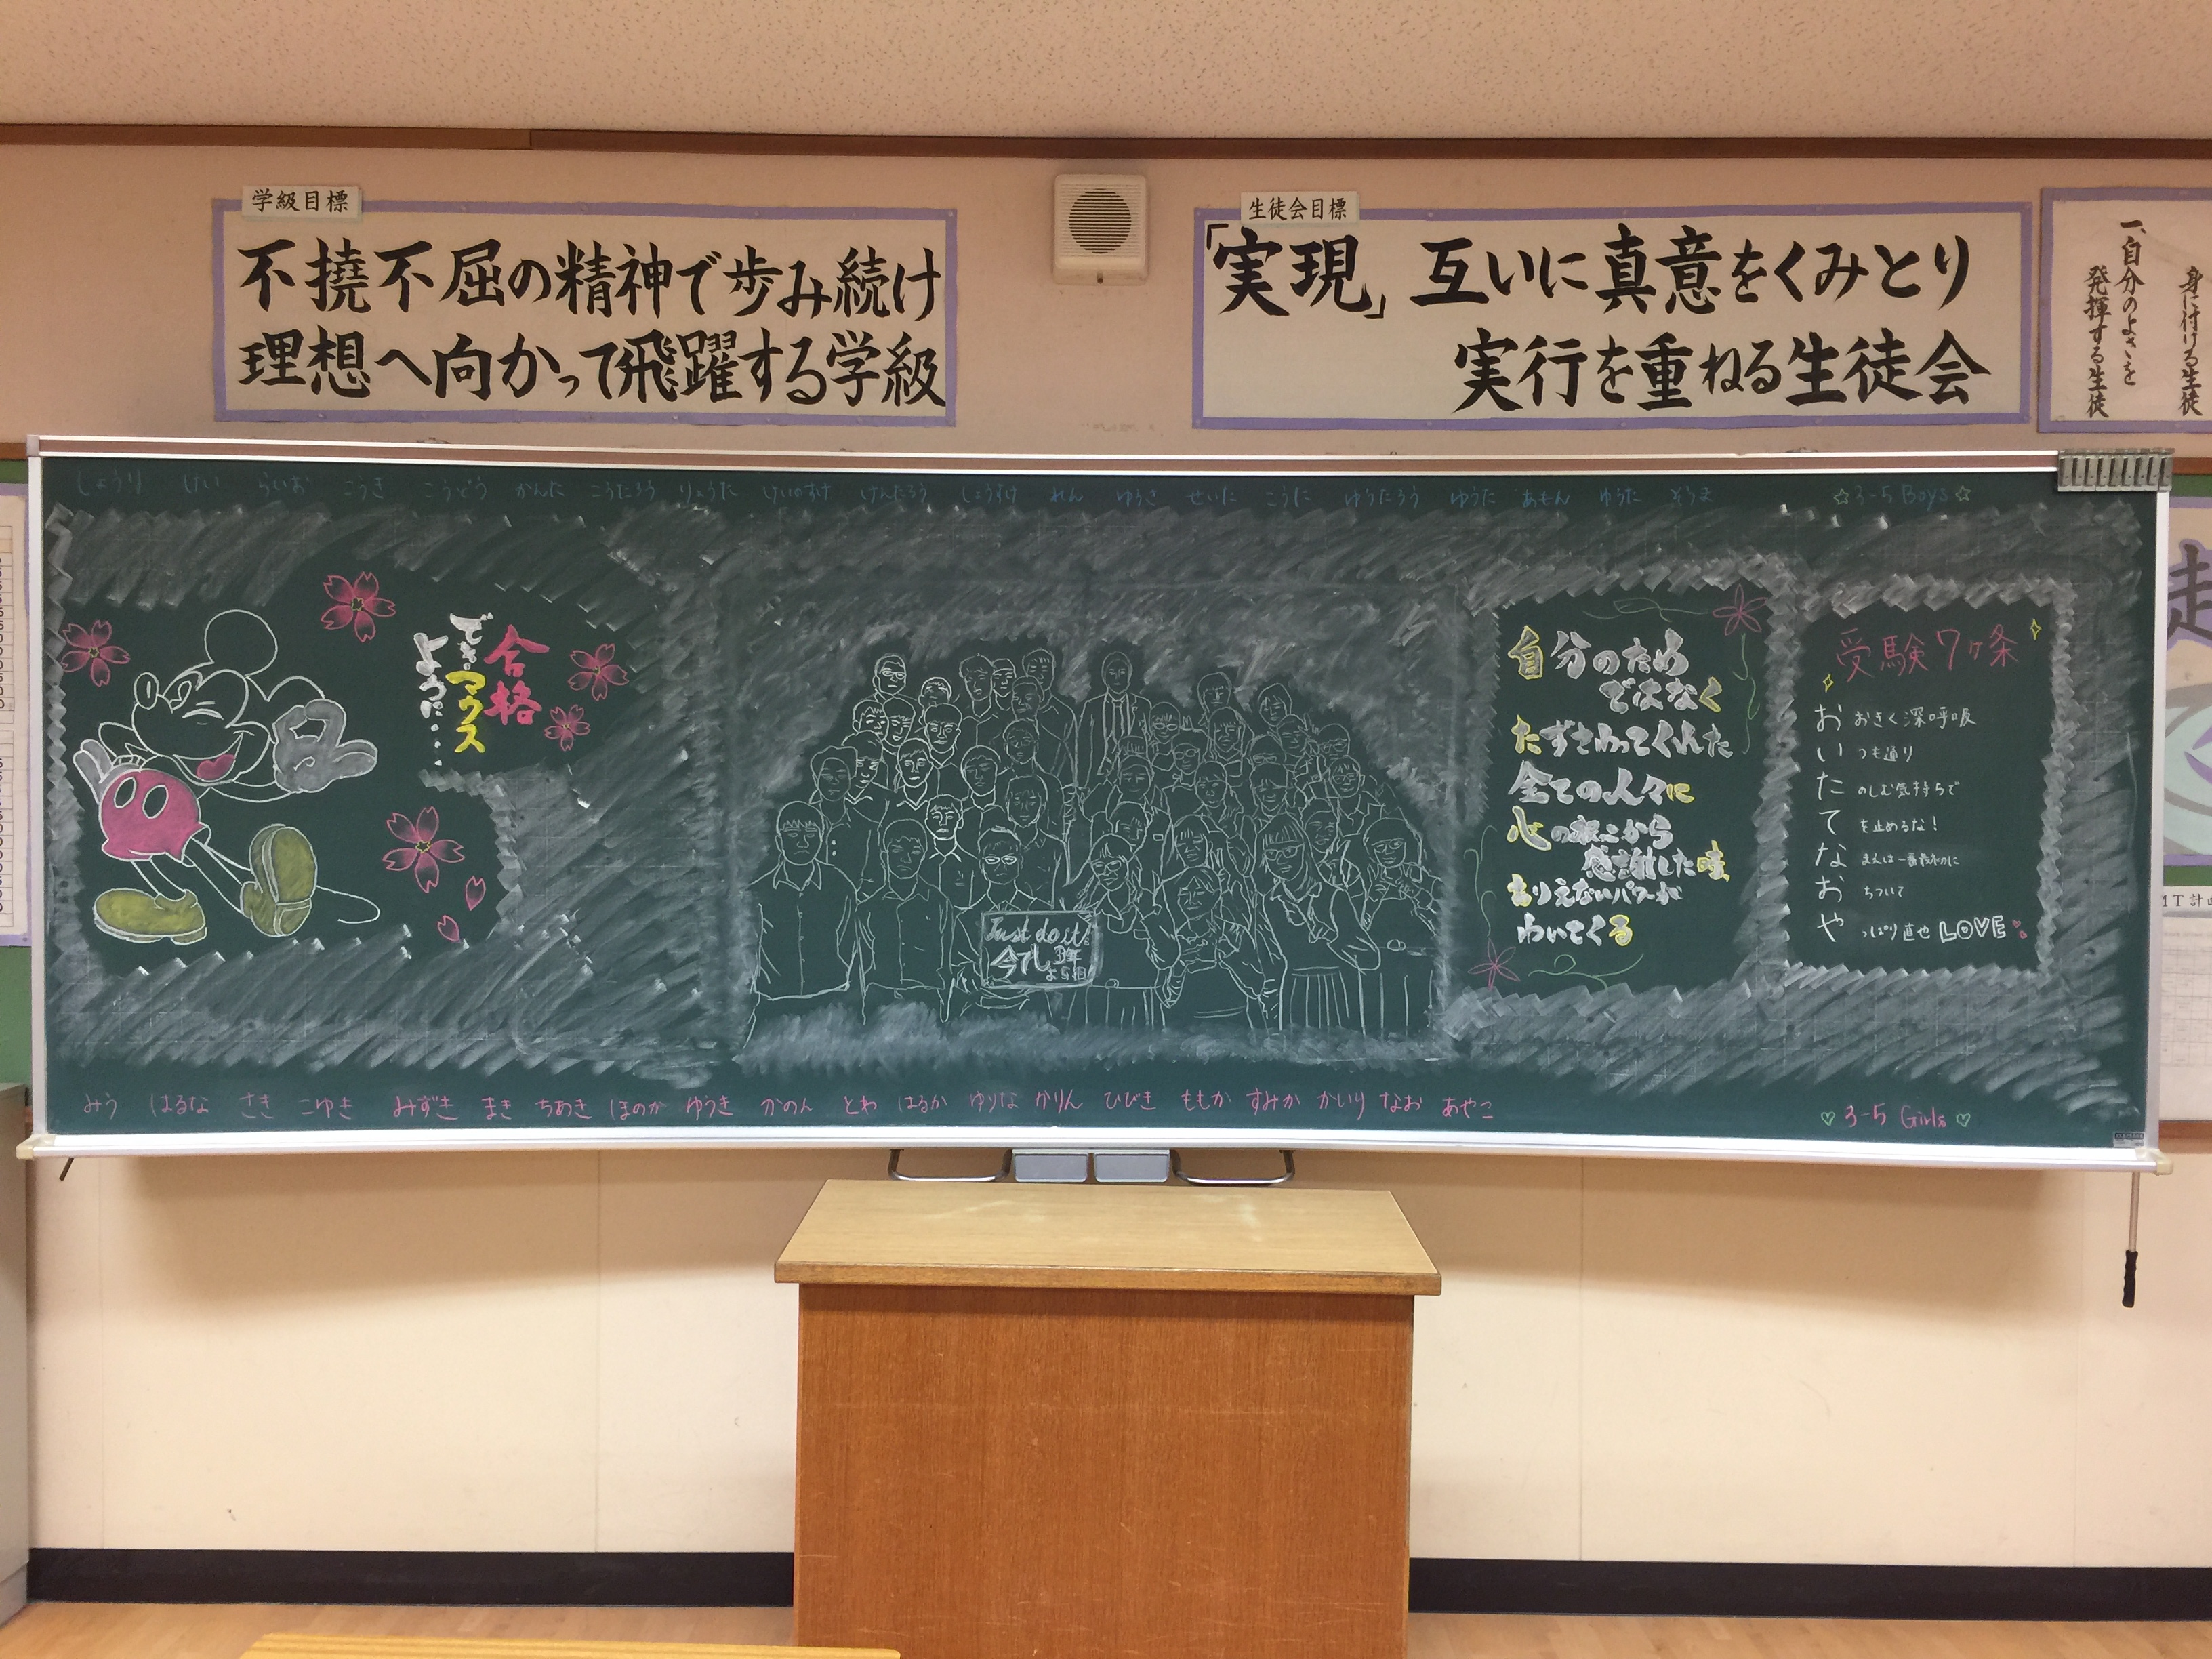 学級目標
不撓不屈の精神で歩み続け
理想へ向かって飛躍する学級
生徒会目標
「実現」互いに真意をくみとり
実行を重ねる生徒会
身に付ける生徒
一、自分のよさを
発揮する生徒
しょうり けい らいお こうき こうどう かんた こうたろう りょうた けいのすけ けんたろう しょうすけ れん ゆうき せいた こうた ゆうたろう ゆうた あもん ゆうた そうま
☆3-5 Boys☆
合格
でき。マウス
ように・・・
Just do it!
今でしょ
3年
5組
自分のため
ではなく
たずさわってくれた
全ての人々に
心の底から
感謝した時、
ありえないパワーが
わいてくる
受験7ヶ条
お おきく深呼吸
い つも通り
た のしむ気持ちで
て を止めるな!
な まえは一番最初に
お ちついて
や っぱり直也 LOVE
みう はるな さき こゆき みずき まき ちあき ほのか ゆうき かのん とわ はるか ゆりな かりん ひびき ももか すみか かいり なお あやこ
♡ 3-5 Girls ♡